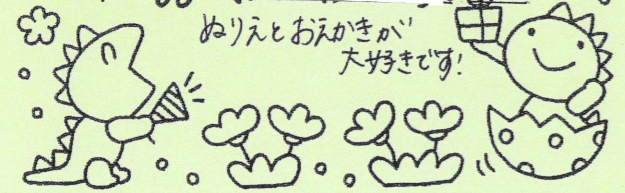 ぬりえとおえかきが
大好きです!